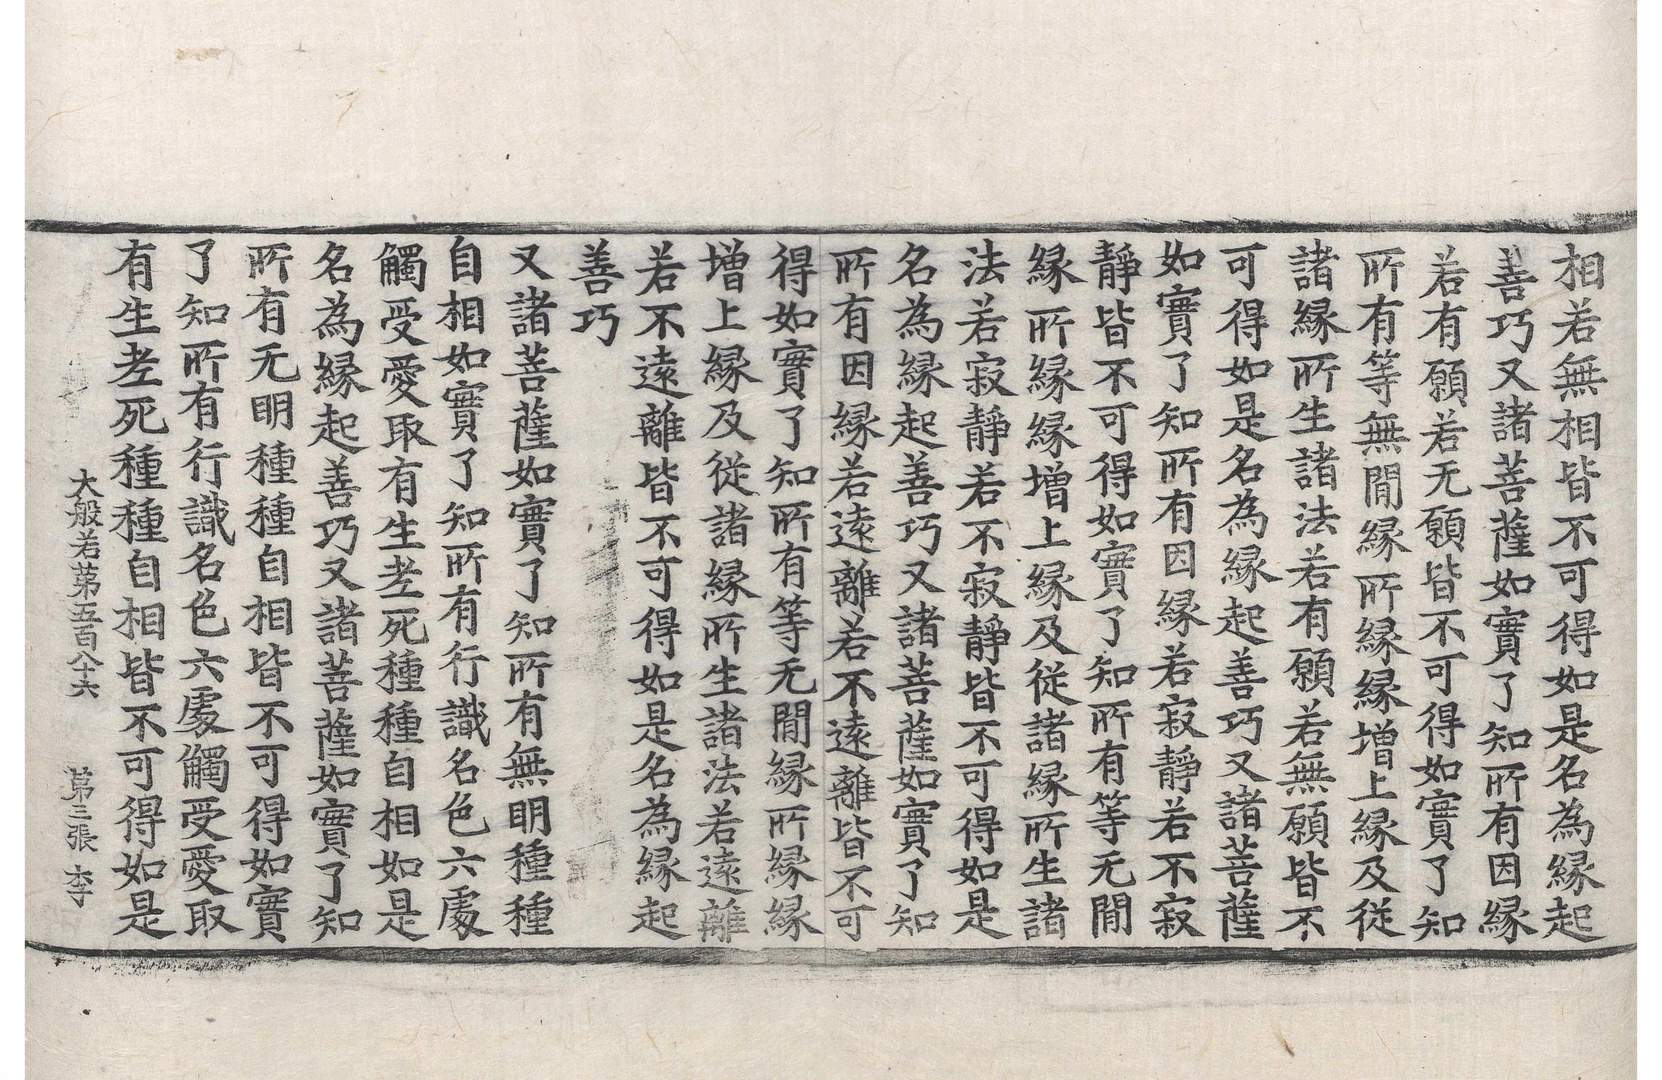 相若無相皆不可得如是名為縁起
善巧又諸菩薩如實了知所有因縁
若有願若无願皆不可得如實了知
所有等無間縁所縁縁增上縁及從
諸縁所生諸法若有願若無願皆不
可得如是名為縁起善巧又諸菩薩
如實了知所有因縁若寂靜若不寂
靜皆不可得如實了知所有等无閒
縁所縁縁增上縁及從諸縁所生諸
法若寂靜若不寂靜皆不可得如是
名為縁起善巧又諸菩薩如實了知
所有因縁若遠離若不遠離皆不可
得如實了知所有等无閒縁所縁縁
增上縁及從諸縁所生諸法若遠離
若不遠離皆不可得如是名為縁起
善巧
又諸菩薩如實了知所有無明種種
自相如實了知所有行識名色六處
觸受愛取有生老死種種自相如是
名為縁起善巧又諸菩薩如實了知
所有无明種種自相皆不可得如實
了知所有行識名色六處觸受愛取
有生老死種種自相皆不可得如是
大般若第五百八十六 第三張 李